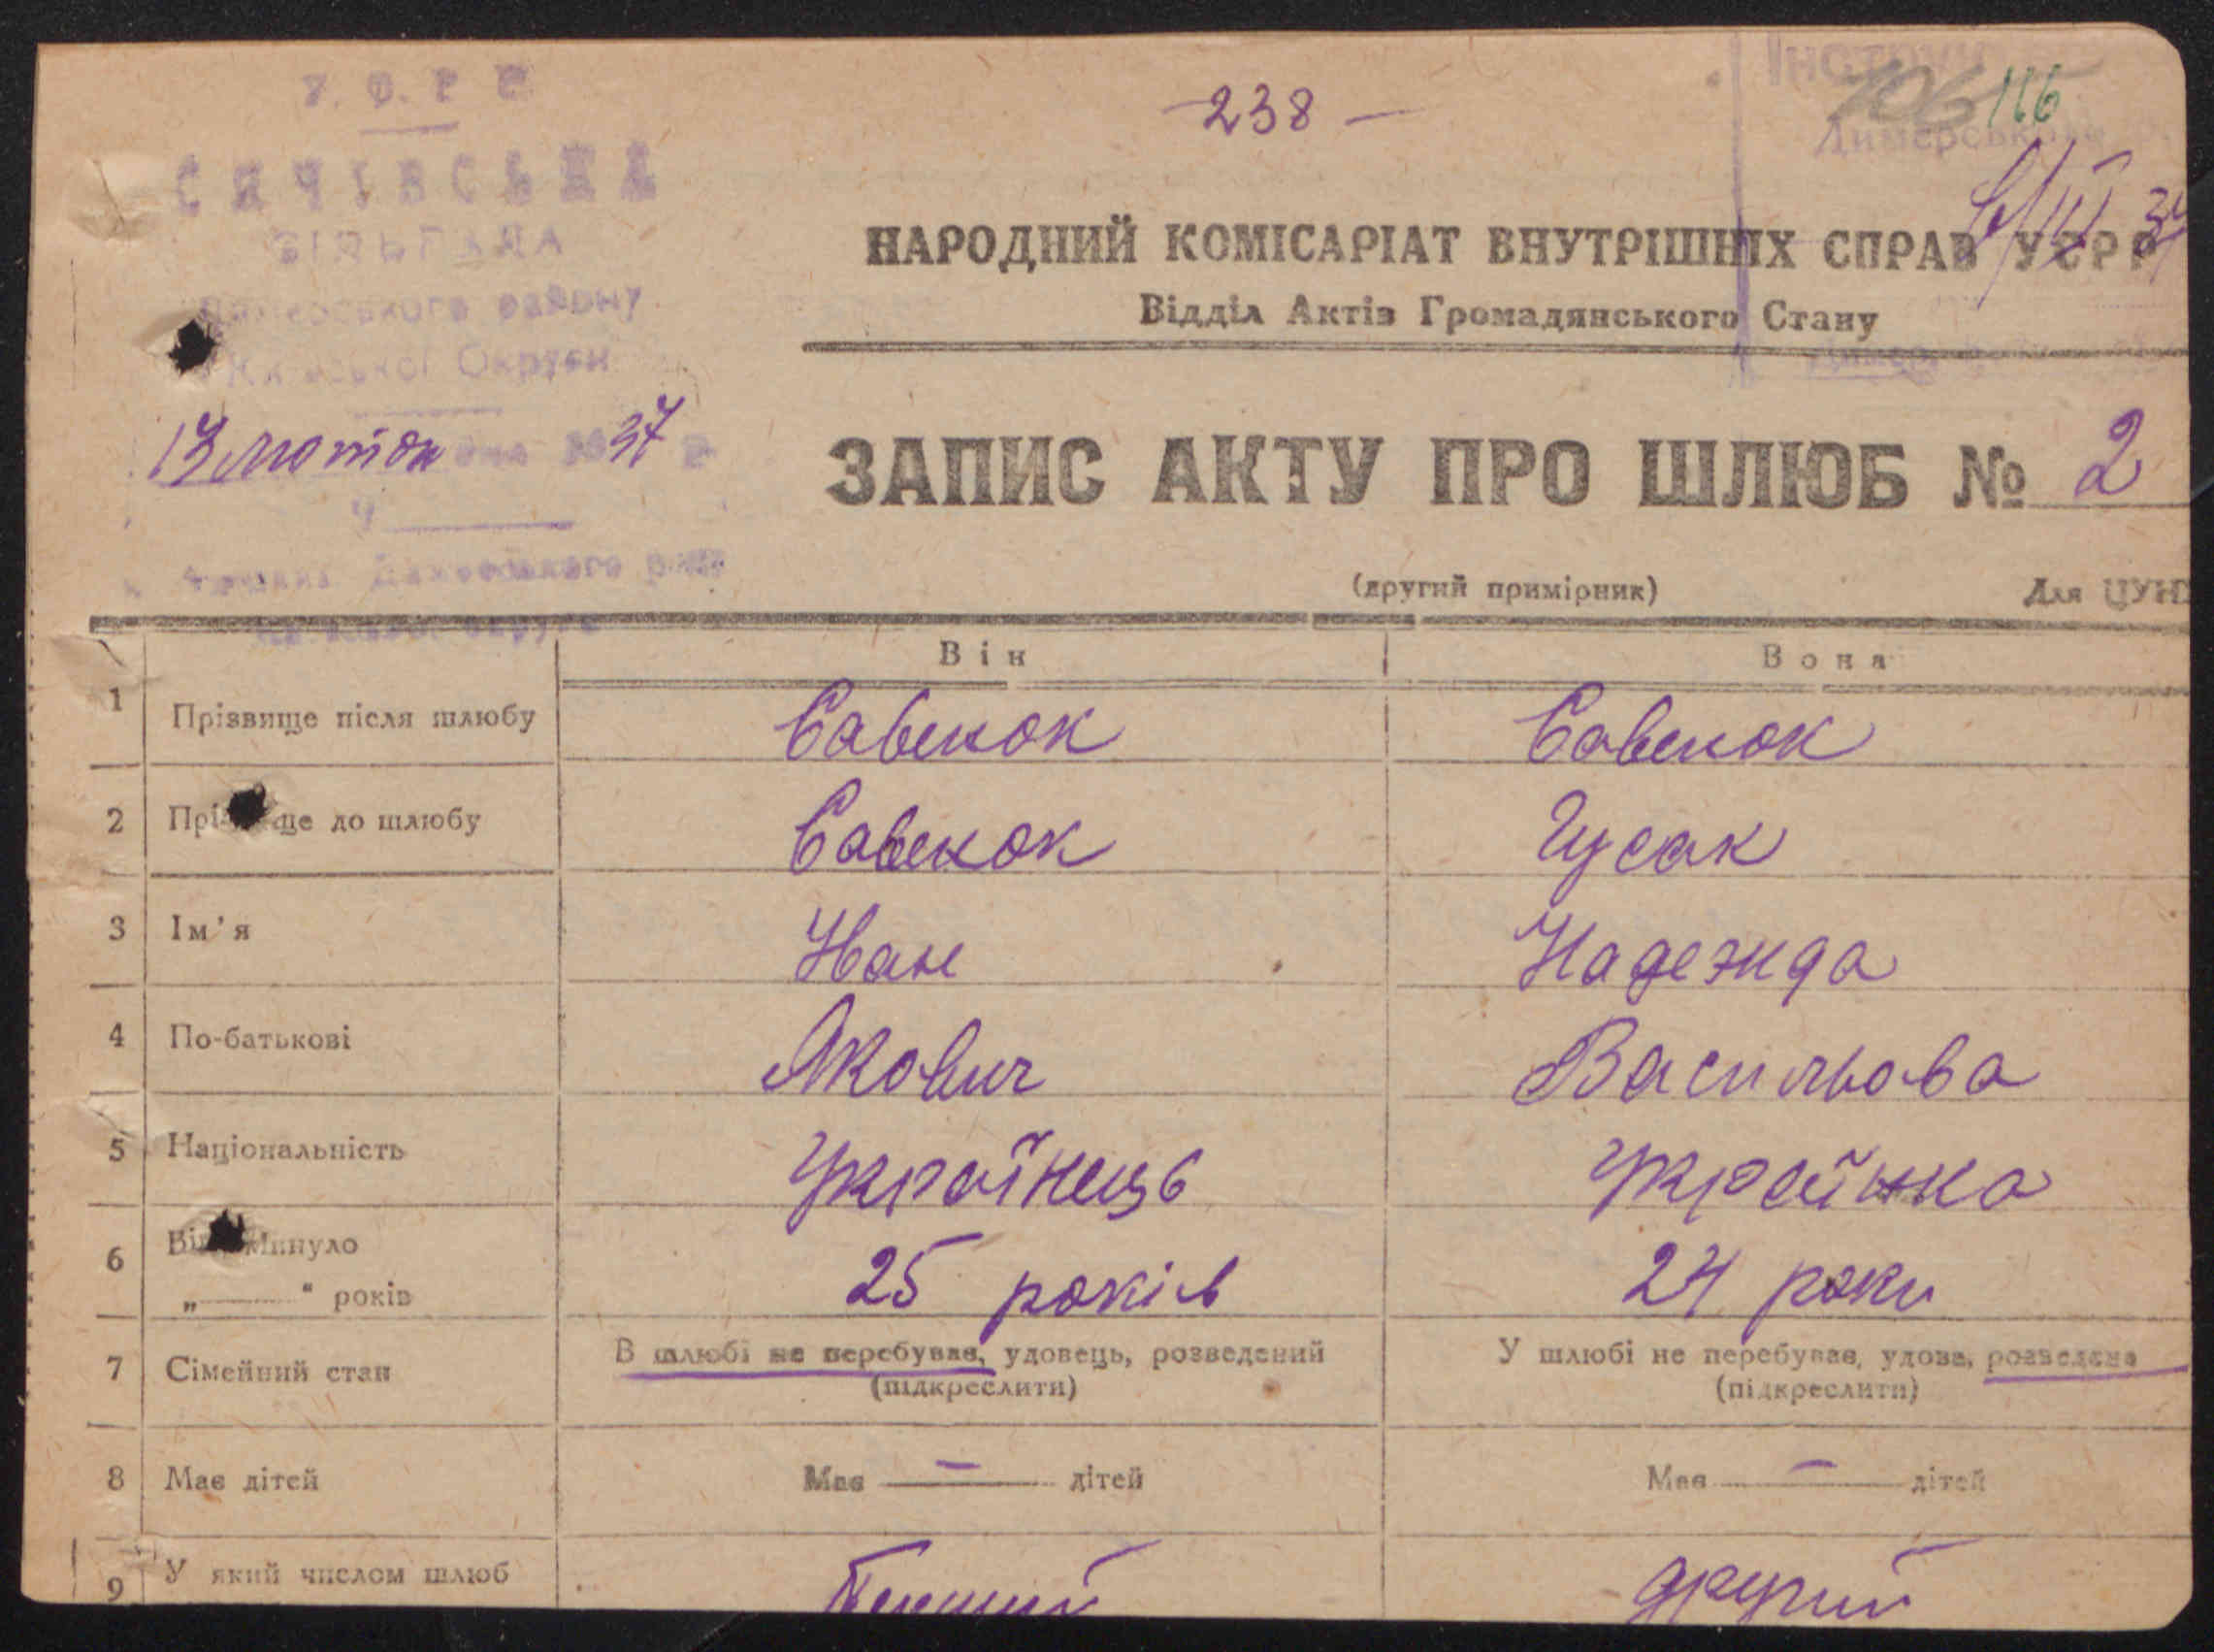 У. С. Р. Р.
СИЧІВСЬКА
СІЛЬРАДА
Димерського району
Київської Округи
17 лютого 1937 р
У
Димерського району
-238-
Інстру
106 116
Димерського
НАРОДНИЙ КОМІСАРІАТ ВНУТРІШНІХ СПРАВ УСРР
Відділ Актів Громадянського Стану
ЗАПИС АКТУ ПРО ШЛЮБ № 2
(другий примірник) Для ЦУН
Він Вона
1 Прізвище після шлюбу Савенок Савенок
2 Прі ще до шлюбу Савенок Гусак
3 Ім'я Иван Надежда
4 По-батькові Якович Васильова
5 Національність Українець Українка
6 Ві Минуло
„ “ років 25 років 24 роки
7 Сімейний стан В шлюбі не перебував, удовець, розведений У шлюбі не перебував, удова, розведена
(підкреслити) (підкреслити)
8 Має дітей Має — дітей Має — дітей
9 У який числом шлюб Перший другий